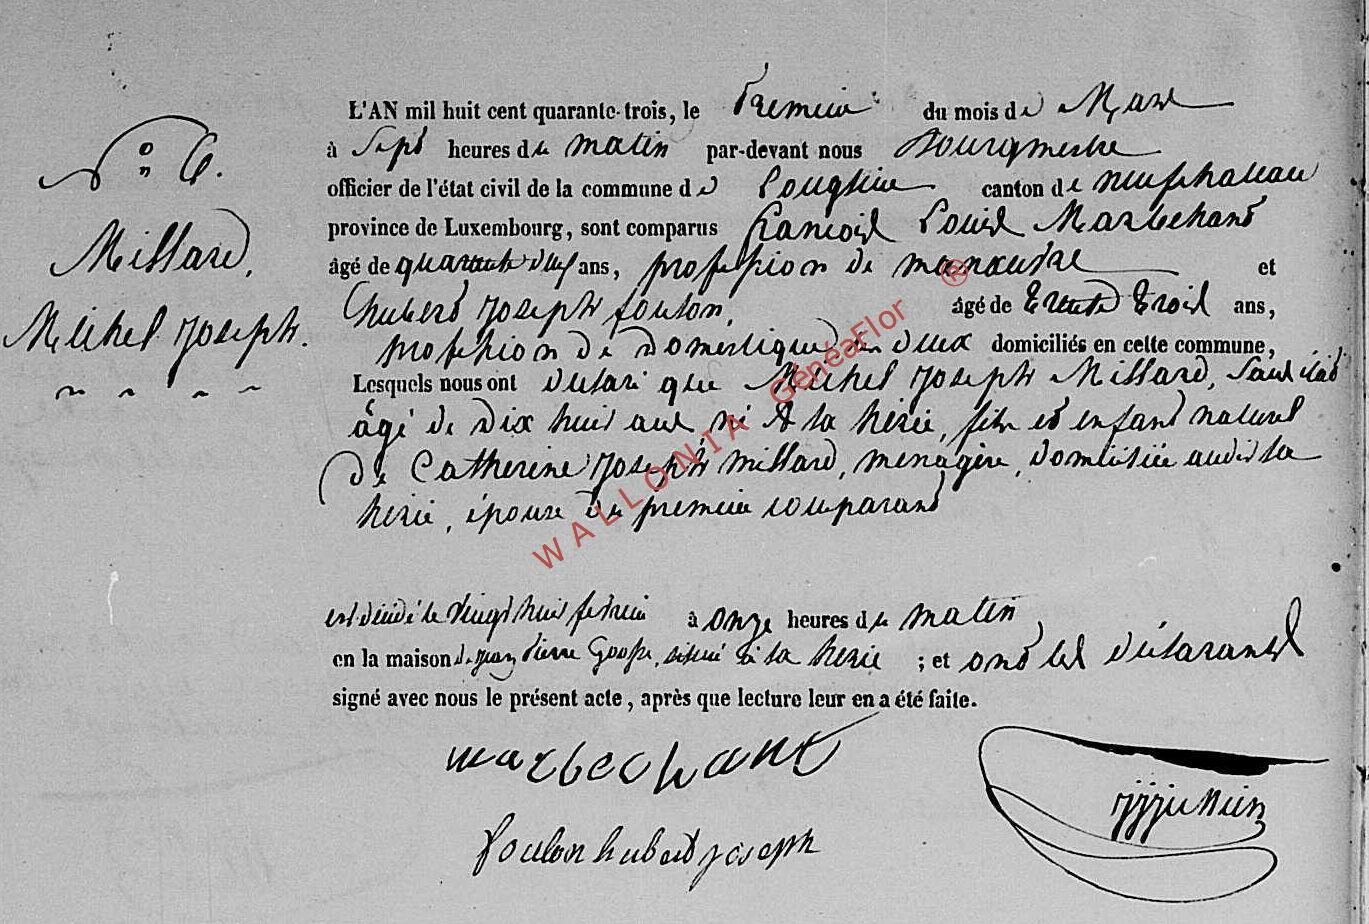 N° 6.
Millard,
Michel Joseph.
L'AN mil huit cent quarante-trois, le Premier du mois de Mars
à Sept heures du matin par-devant nous Bourgmestre
officier de l'état civil de la commune de Longlier canton de neufchateau
province de Luxembourg, sont comparus françois Louis Marbehant
âgé de quarante deux ans, profession de manœuvre et
hubert Joseph foulon, âgé de trente trois ans,
profession de domestique les deux domiciliés en cette commune,
Lesquels nous ont déclaré que Michel Joseph Millard, Sans état
âgé de dix huit ans né à la hérie, fils et enfant naturel
de Catherine Joseph millard, menagère, domiciliée audit la
hérie, épouse du premier comparant
est décédé le vingt huit fevrier à onze heures du matin,
en la maison de jean Pierre situé à la hérie ; et ont les déclarants
signé avec nous le présent acte, après que lecture leur en a été faite.
marbehant
foulon hubert joseph
WALLONIA GénéaFlor ®